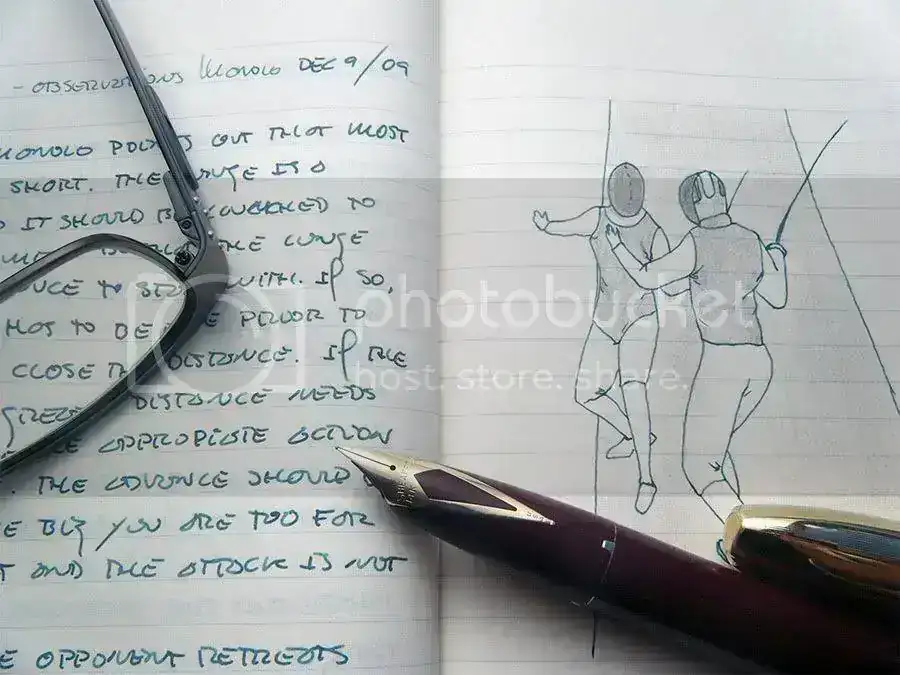 - OBSERVATIONS MONOLO DEC 9/09
MONOLO POINTS OUT THAT MOST
SHORT. THE LUNGE IS A
IT SHOULD BE LAUNCHED TO
THE LUNGE
TO WITH. IF SO,
HAS TO BE PRIOR TO
CLOSE THE DISTANCE. IF THE
DISTANCE NEEDS
APPROPIATE ACTION
. THE ADVANCE SHOULD
E BIG YOU ARE TOO FAR
T AND THE ATTACK IS NOT
E OPPONENT RETREATS
photobucket
host. store. share.